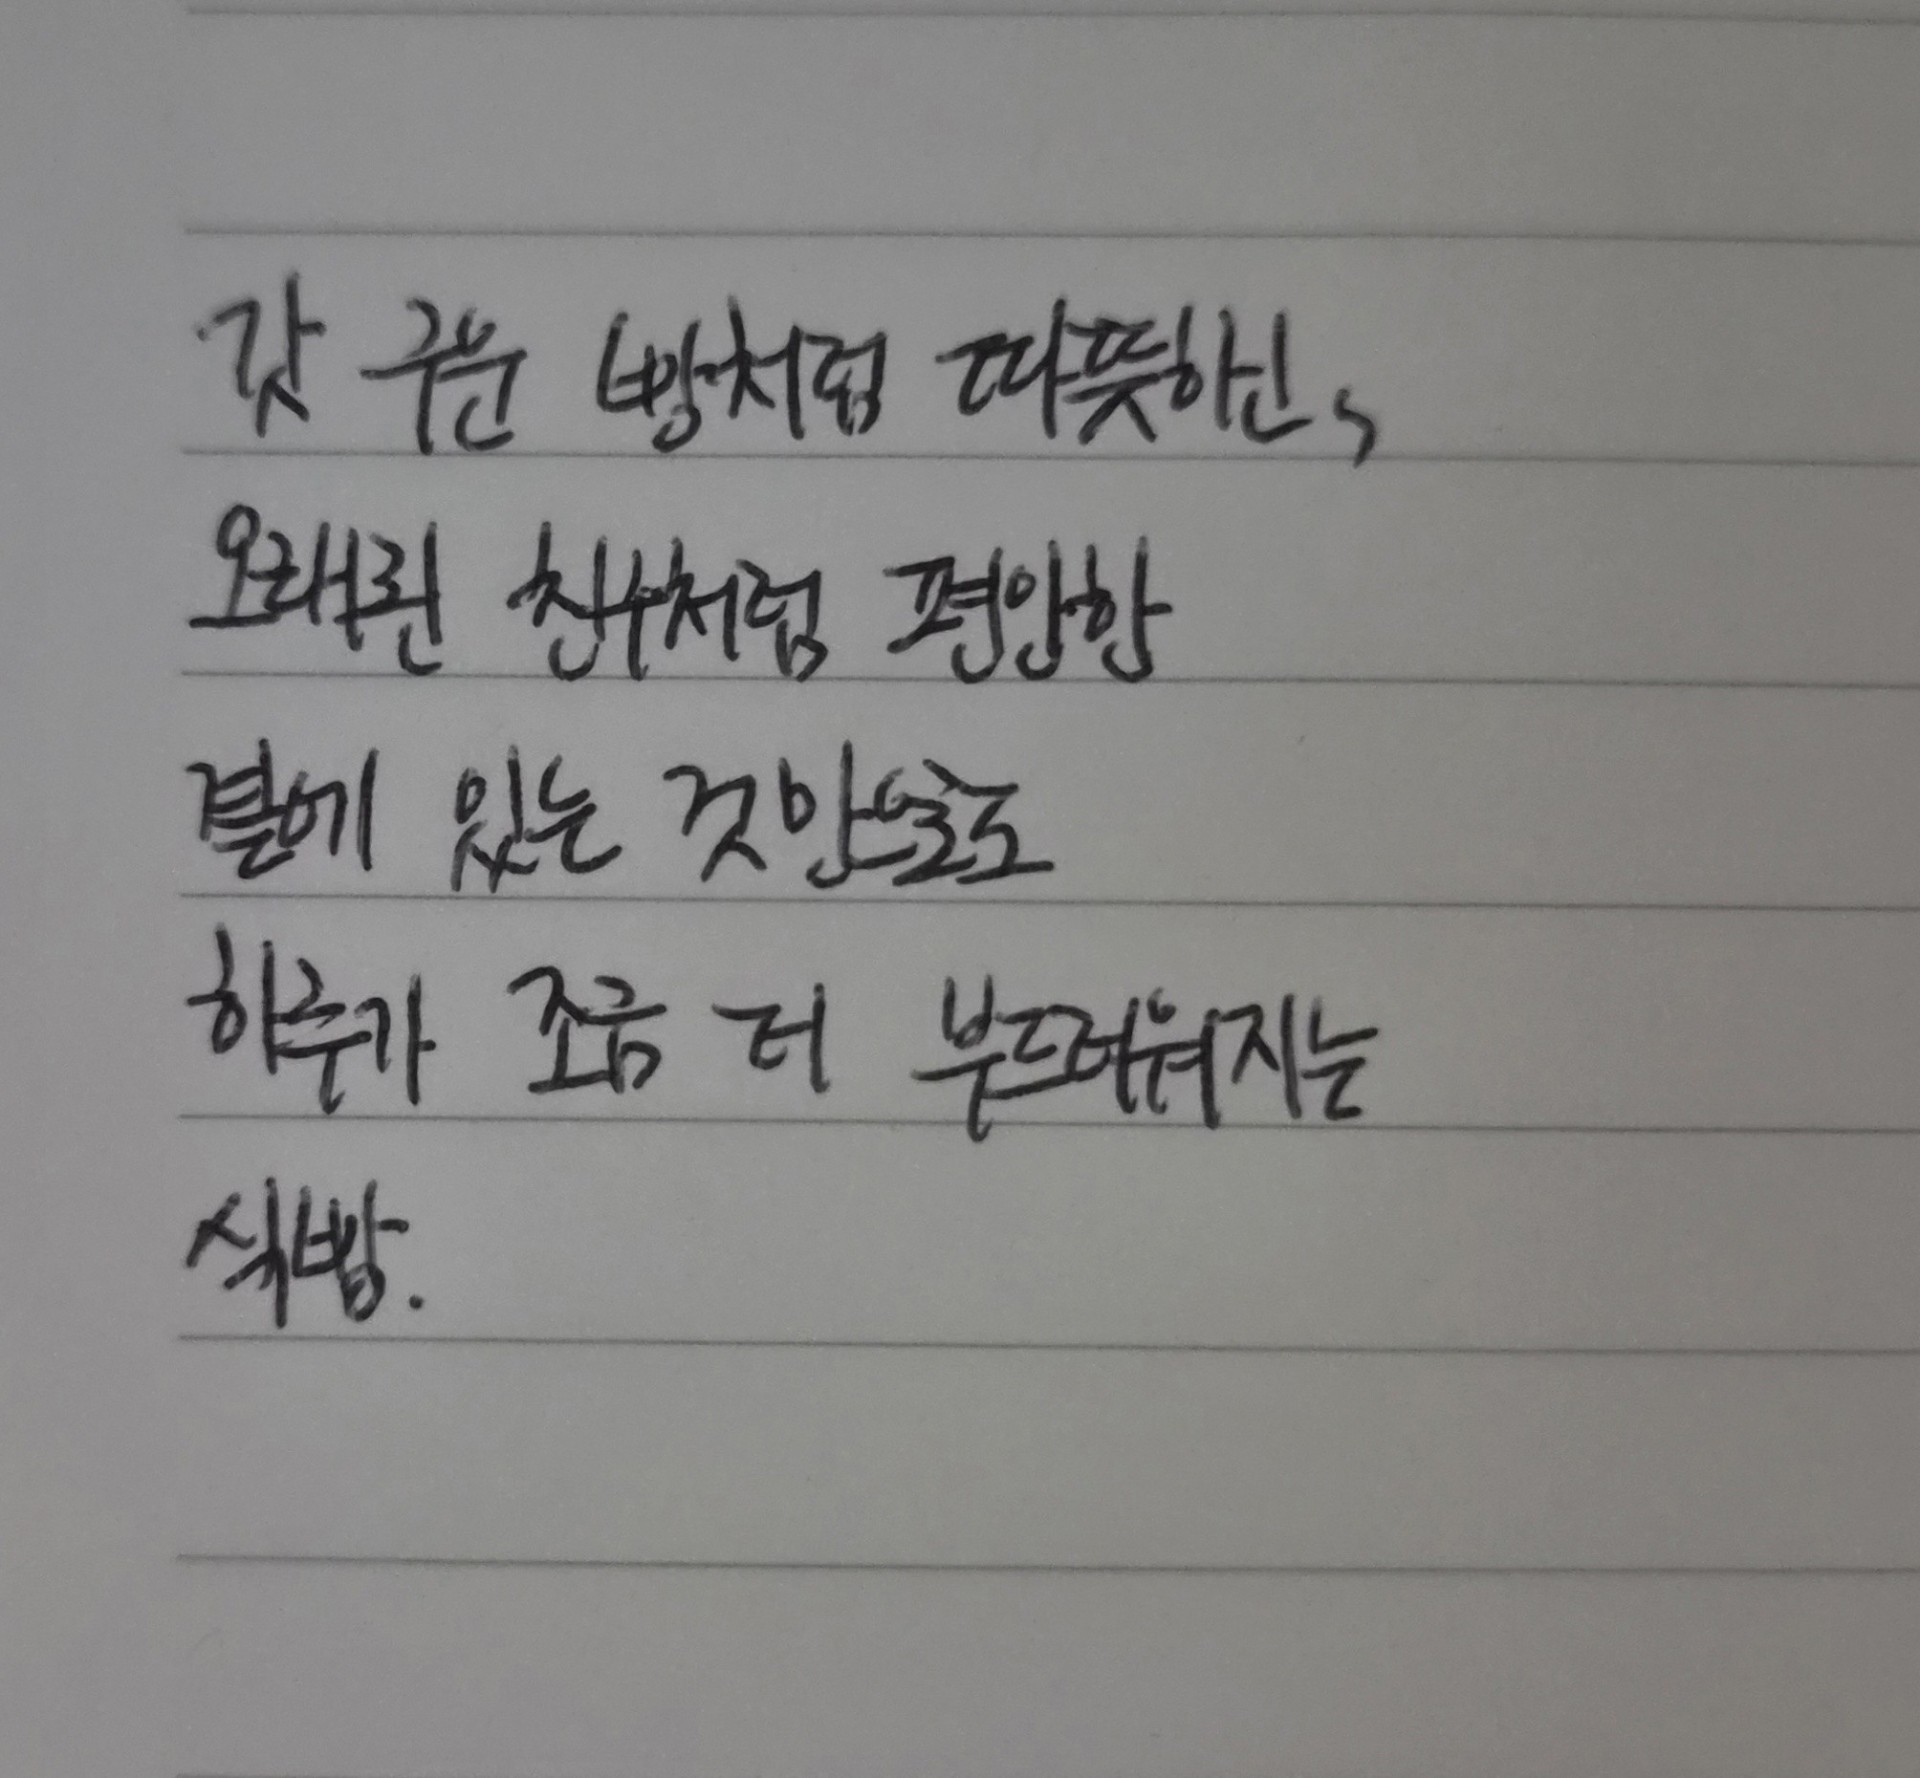 갓 구운 빵처럼 따뜻하신,
오래된 친구처럼 편안한
곁에 있는 것만으로도
하루가 조금 더 부드러워지는
식빵.